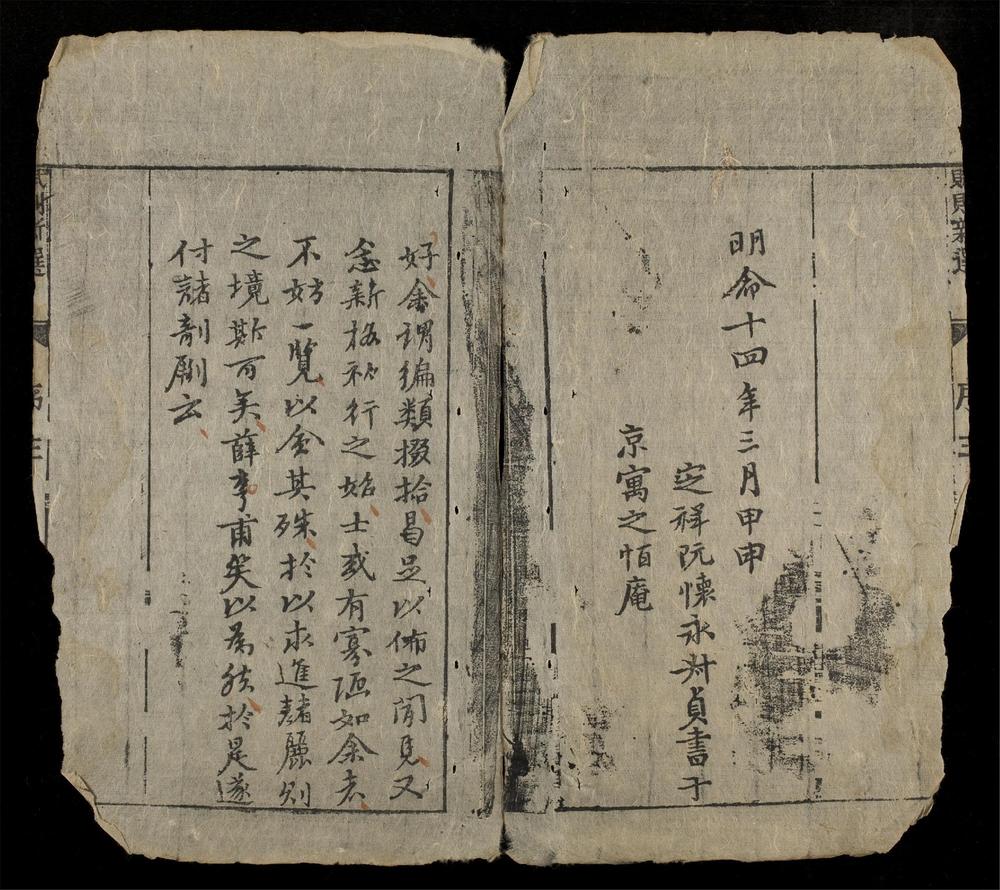 好余謂編類掇拾曷足以佈之聞見又
念新格初行之始士或有寡陋如余者
不妨一覽以會其殊於以求進諸麗則
之境斯可矣薛亭甫笑以為然於是遂
付諸剞劂云
明命十四年三月甲申
定祥阮懷永叔貞書于
京寓之恒庵
賦則新選
序三